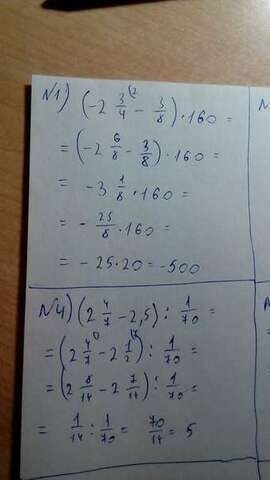 N1) (-2 3/4 - 3/8) · 160 =
= (-2 6/8 - 3/8) · 160 =
= -3 1/8 · 160 =
= - 25/8 · 160 =
= -25 · 20 = -500
N4) (2 4/7 - 2,5) : 1/70 =
= (2 4/7 - 2 1/2) : 1/70 =
= (2 8/14 - 2 7/14) : 1/70 =
= 1/14 : 1/70 = 70/14 = 5